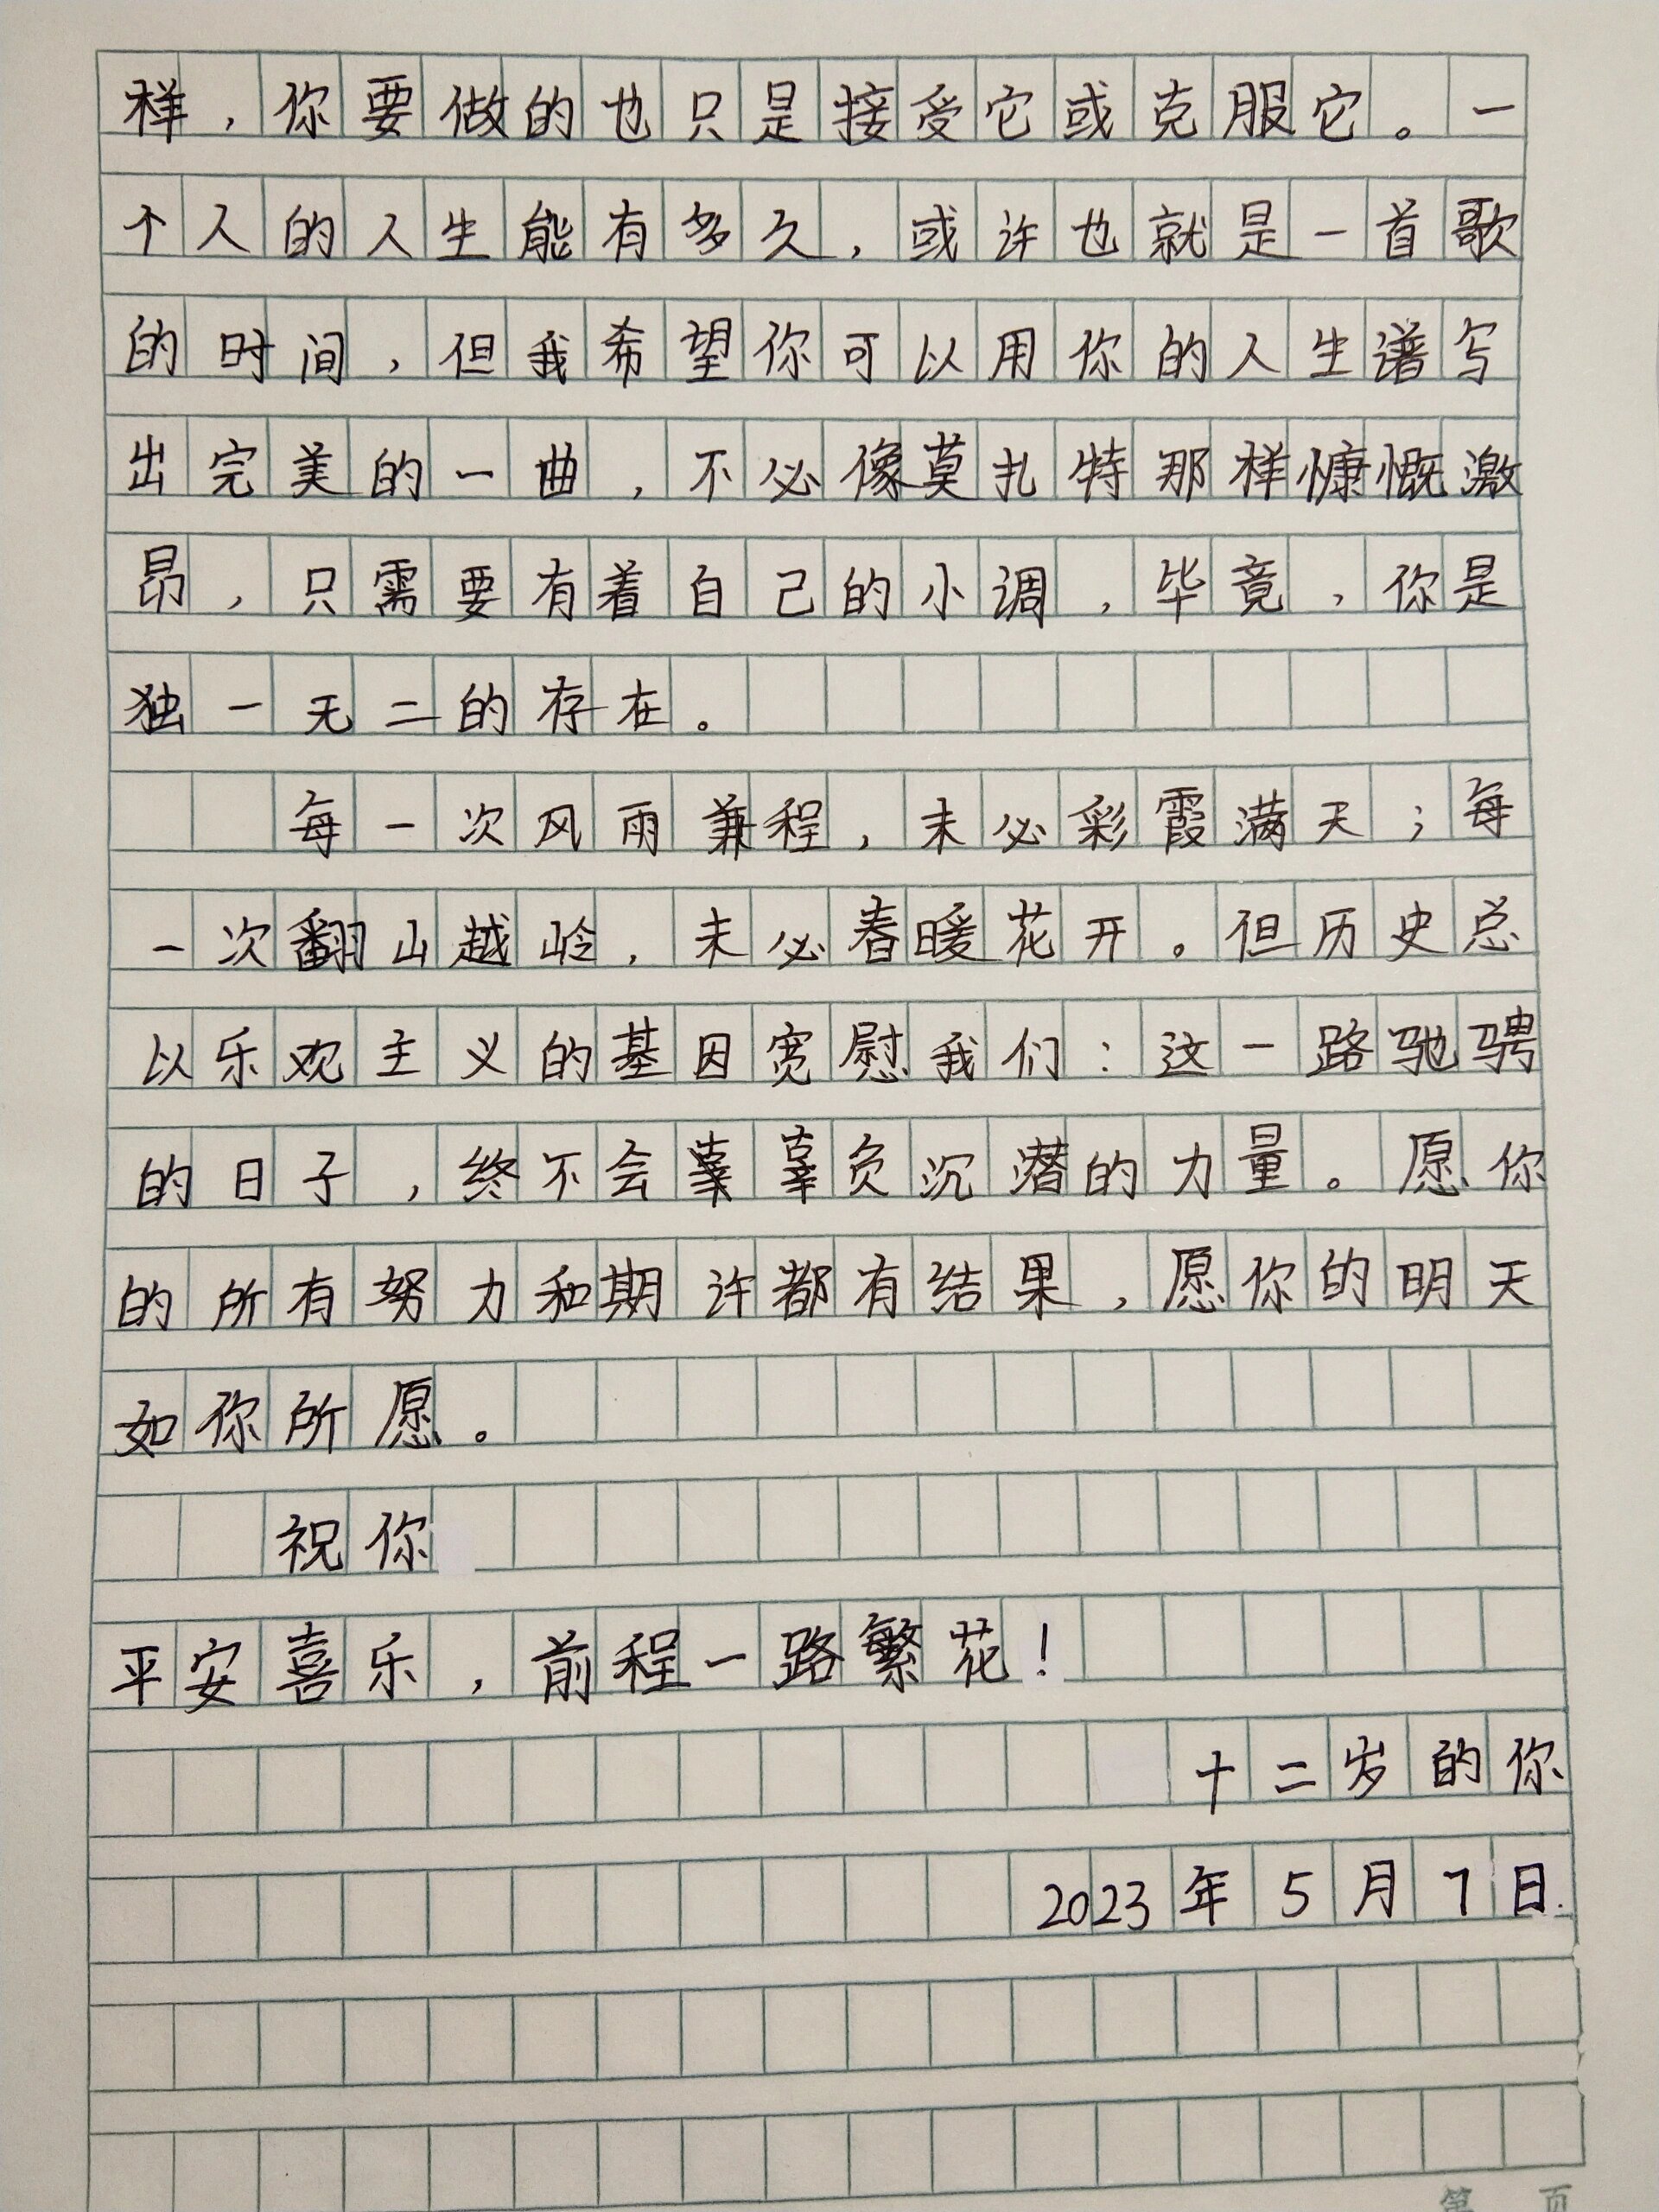 样，你要做的也只是接受它或克服它。一
个人的人生能有多久，或许也就是一首歌
的时间，但我希望你可以用你的人生谱写
出完美的一曲，不必像莫扎特那样慷慨激
昂，只需要有着自己的小调，毕竟，你是
独一无二的存在。
每一次风雨兼程，未必彩霞满天；每
一次翻山越岭，未必春暖花开。但历史总
以乐观主义的基因宽慰我们：这一路驰骋
的日子，终不会辜辜负沉潜的力量。愿你
的所有努力和期许都有结果，愿你的明天
如你所愿。
祝你
平安喜乐，前程一路繁花！
十二岁的你
2023年5月7日
第 页